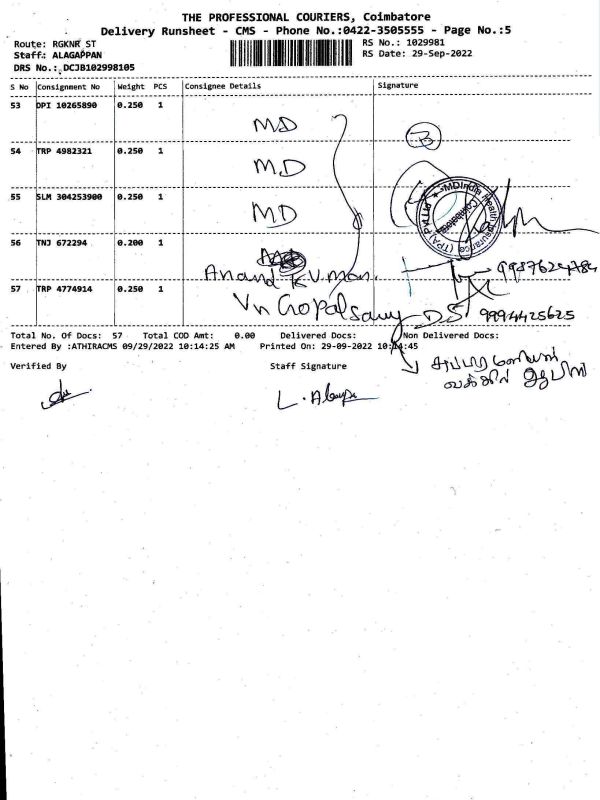 THE PROFESSIONAL COURIERS, Coimbatore
Delivery Runsheet - CMS - Phone No.:0422-3505555 - Page No.:5
Route: RGKNR ST
RS No.: 1029981
Staff: ALAGAPPAN
RS Date: 29-Sep-2022
DRS No.: DCJB102998105
S No Consignment No Weight PCS Consignee Details Signature
53 DPI 10265890 0.250 1
MD
54 TRP 4982321 0.250 1
MD
55 SLM 304253900 0.250 1
MD
MDIndia Health Insurance (TPA) Pvt.Ltd
Coimbatore
56 TNJ 672294 0.200 1
Anand K
57 TRP 4774914 0.250 1
Vn Gopalsamy DS 9994425625
Total No. Of Docs: 57 Total COD Amt: 0.00 Delivered Docs: Non Delivered Docs:
Entered By :ATHIRACMS 09/29/2022 10:14:25 AM Printed On: 29-09-2022 10:14:45
Verified By Staff Signature